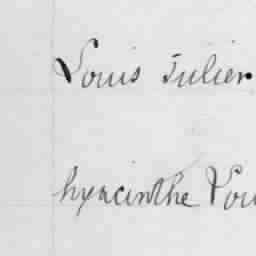 Louis Julien
hyacinthe Lou